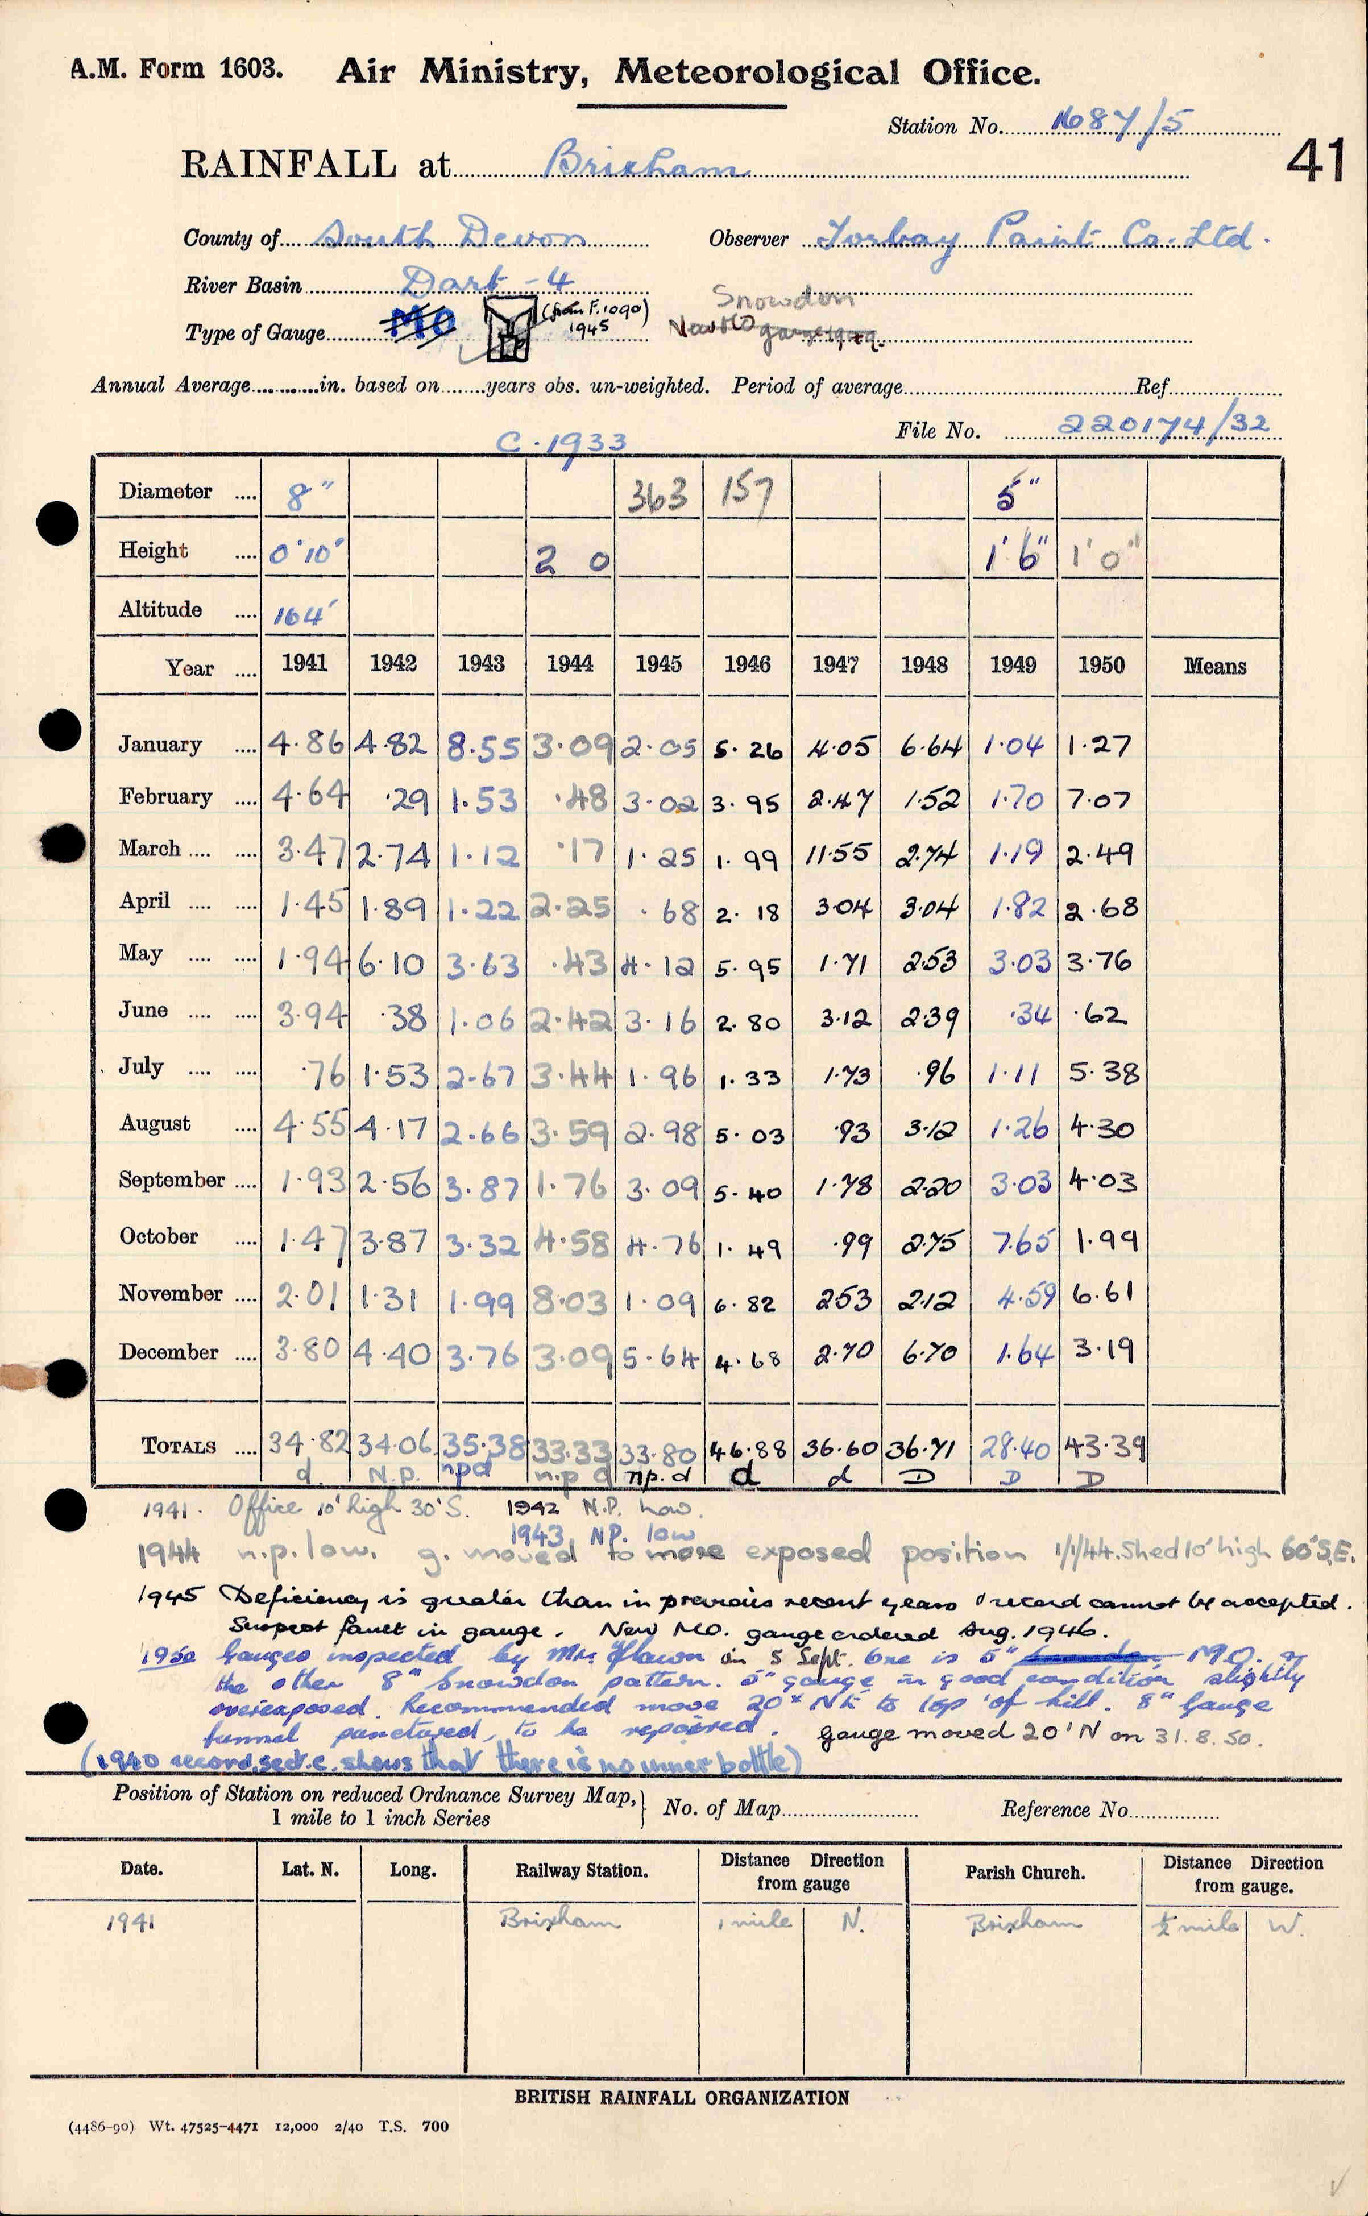 A.M. Form 1603. Air Ministry, Meteorological Office.
Station No. 1687/5
41
RAINFALL at Brixham
County of South Devon Observer Torbay Paint Co. Ltd.
River Basin Dart - 4
Snowdon
Type of Gauge MO (from F.1090) 1945 New MO gauge 1949.
Annual Average in. based on years obs. un-weighted. Period of average Ref
File No. 220174/32
C - 1933
Diameter 8" 363 157 5"
Height 0'10" 2 0 1'6" 1'0"
Altitude 164'
Year 1941 1942 1943 1944 1945 1946 1947 1948 1949 1950 Means
January 4.86 4.82 8.55 3.09 2.05 5.26 4.05 6.64 1.04 1.27
February 4.64 .29 1.53 .48 3.02 3.95 2.47 1.52 1.70 7.07
March 3.47 2.74 1.12 .17 1.25 1.99 11.55 2.74 1.19 2.49
April 1.45 1.89 1.22 2.25 .68 2.18 3.04 3.04 1.82 2.68
May 1.94 6.10 3.63 .43 4.12 5.95 1.71 2.53 3.03 3.76
June 3.94 .38 1.06 2.42 3.16 2.80 3.12 2.39 .34 .62
July .76 1.53 2.67 3.44 1.96 1.33 1.73 .96 1.11 5.38
August 4.55 4.17 2.66 3.59 2.98 5.03 .93 3.12 1.26 4.30
September 1.93 2.56 3.87 1.76 3.09 5.40 1.78 2.20 3.03 4.03
October 1.47 3.87 3.32 4.58 4.76 1.49 .99 2.75 7.65 1.99
November 2.01 1.31 1.99 8.03 1.09 6.82 2.53 2.12 4.59 6.61
December 3.80 4.40 3.76 3.09 5.64 4.68 2.70 6.70 1.64 3.19
TOTALS 34.82 34.06 35.38 33.33 33.80 46.88 36.60 36.71 28.40 43.39
d. N.P. npd n.p d np.d d d D D D
1941. Office 10' high 30'S. 1942 N.P. low.
1943 NP. low
1944 n.p. low. g. moved to more exposed position 1/1/44. Shed 10' high 60'S.E.
1945 Deficiency is greater than in previous recent years & record cannot be accepted.
Suspect fault in gauge. New MO. gauge ordered Aug. 1946.
1950 Gauges inspected by Mr. on 5 Sept. One is 5" M.O. &
the other 8" Snowdon pattern. 5" gauge in good condition slightly
overexposed. Recommended move 20' NE to top of hill. 8" Gauge
funnel punctured, to be repaired. Gauge moved 20'N on 31.8.50.
(1940 record, sect. c. shows that there is no inner bottle)
Position of Station on reduced Ordnance Survey Map, 1 mile to 1 inch Series } No. of Map Reference No.
Date. Lat. N. Long. Railway Station. Distance Direction from gauge Parish Church. Distance Direction from gauge.
1941 Brixham 1 mile N. Brixham ½ mile W.
BRITISH RAINFALL ORGANIZATION
(4486-90) Wt. 47525-4471 12,000 2/40 T.S. 700